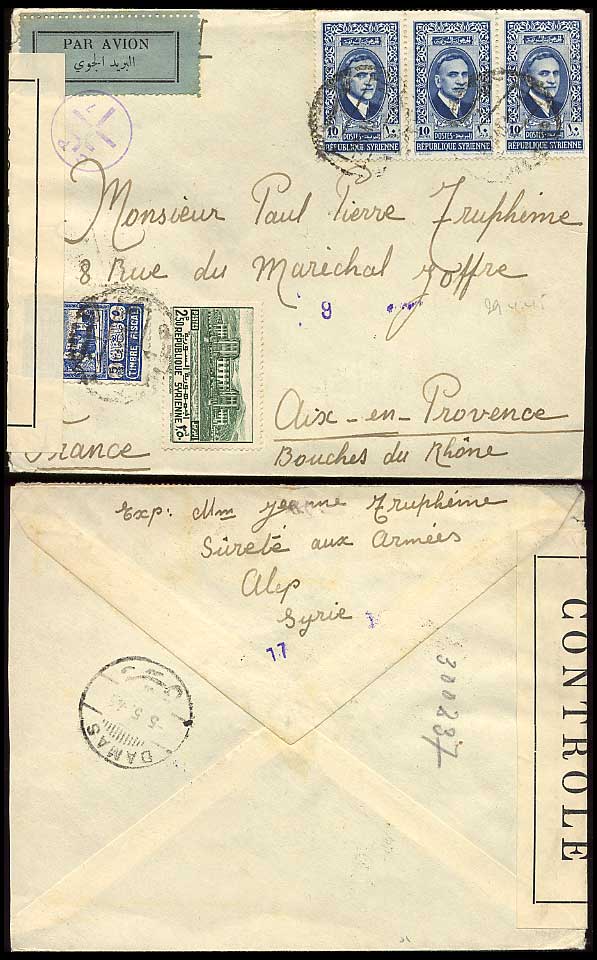 PAR AVION
البريد الجوي
10 POSTES ١٠
RÉPUBLIQUE SYRIENNE
10 POSTES ١٠
RÉPUBLIQUE SYRIENNE
10 POSTES ١٠
RÉPUBLIQUE SYRIENNE
Monsieur Paul Pierre Truphème
8 Rue du Maréchal Joffre
8
29.4.45
TIMBRE FISCAL
2P.50 RÉPUBLIQUE SYRIENNE
الجمهورية السورية
Aix-en-Provence
Bouches du Rhône
France
Exp: Mme Jeanne Truphème
Sûreté aux Armées
Alep
Syrie
77
DAMAS
300237
CONTROLE